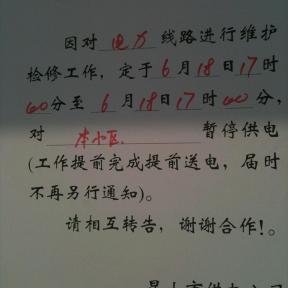 因对 电力 线路进行维护
检修工作，定于 6 月 18 日 17 时
00 分至 6 月 18 日 17 时 00 分，
对 本小区 暂停供电
(工作提前完成提前送电，届时
不再另行通知)。
请相互转告，谢谢合作！。